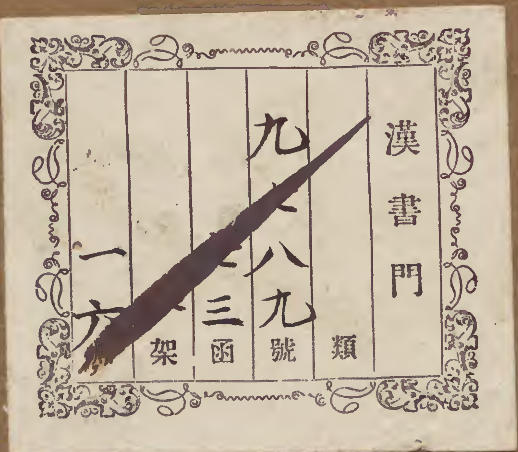 漢書門
類
九七八九號
三函
架
一六